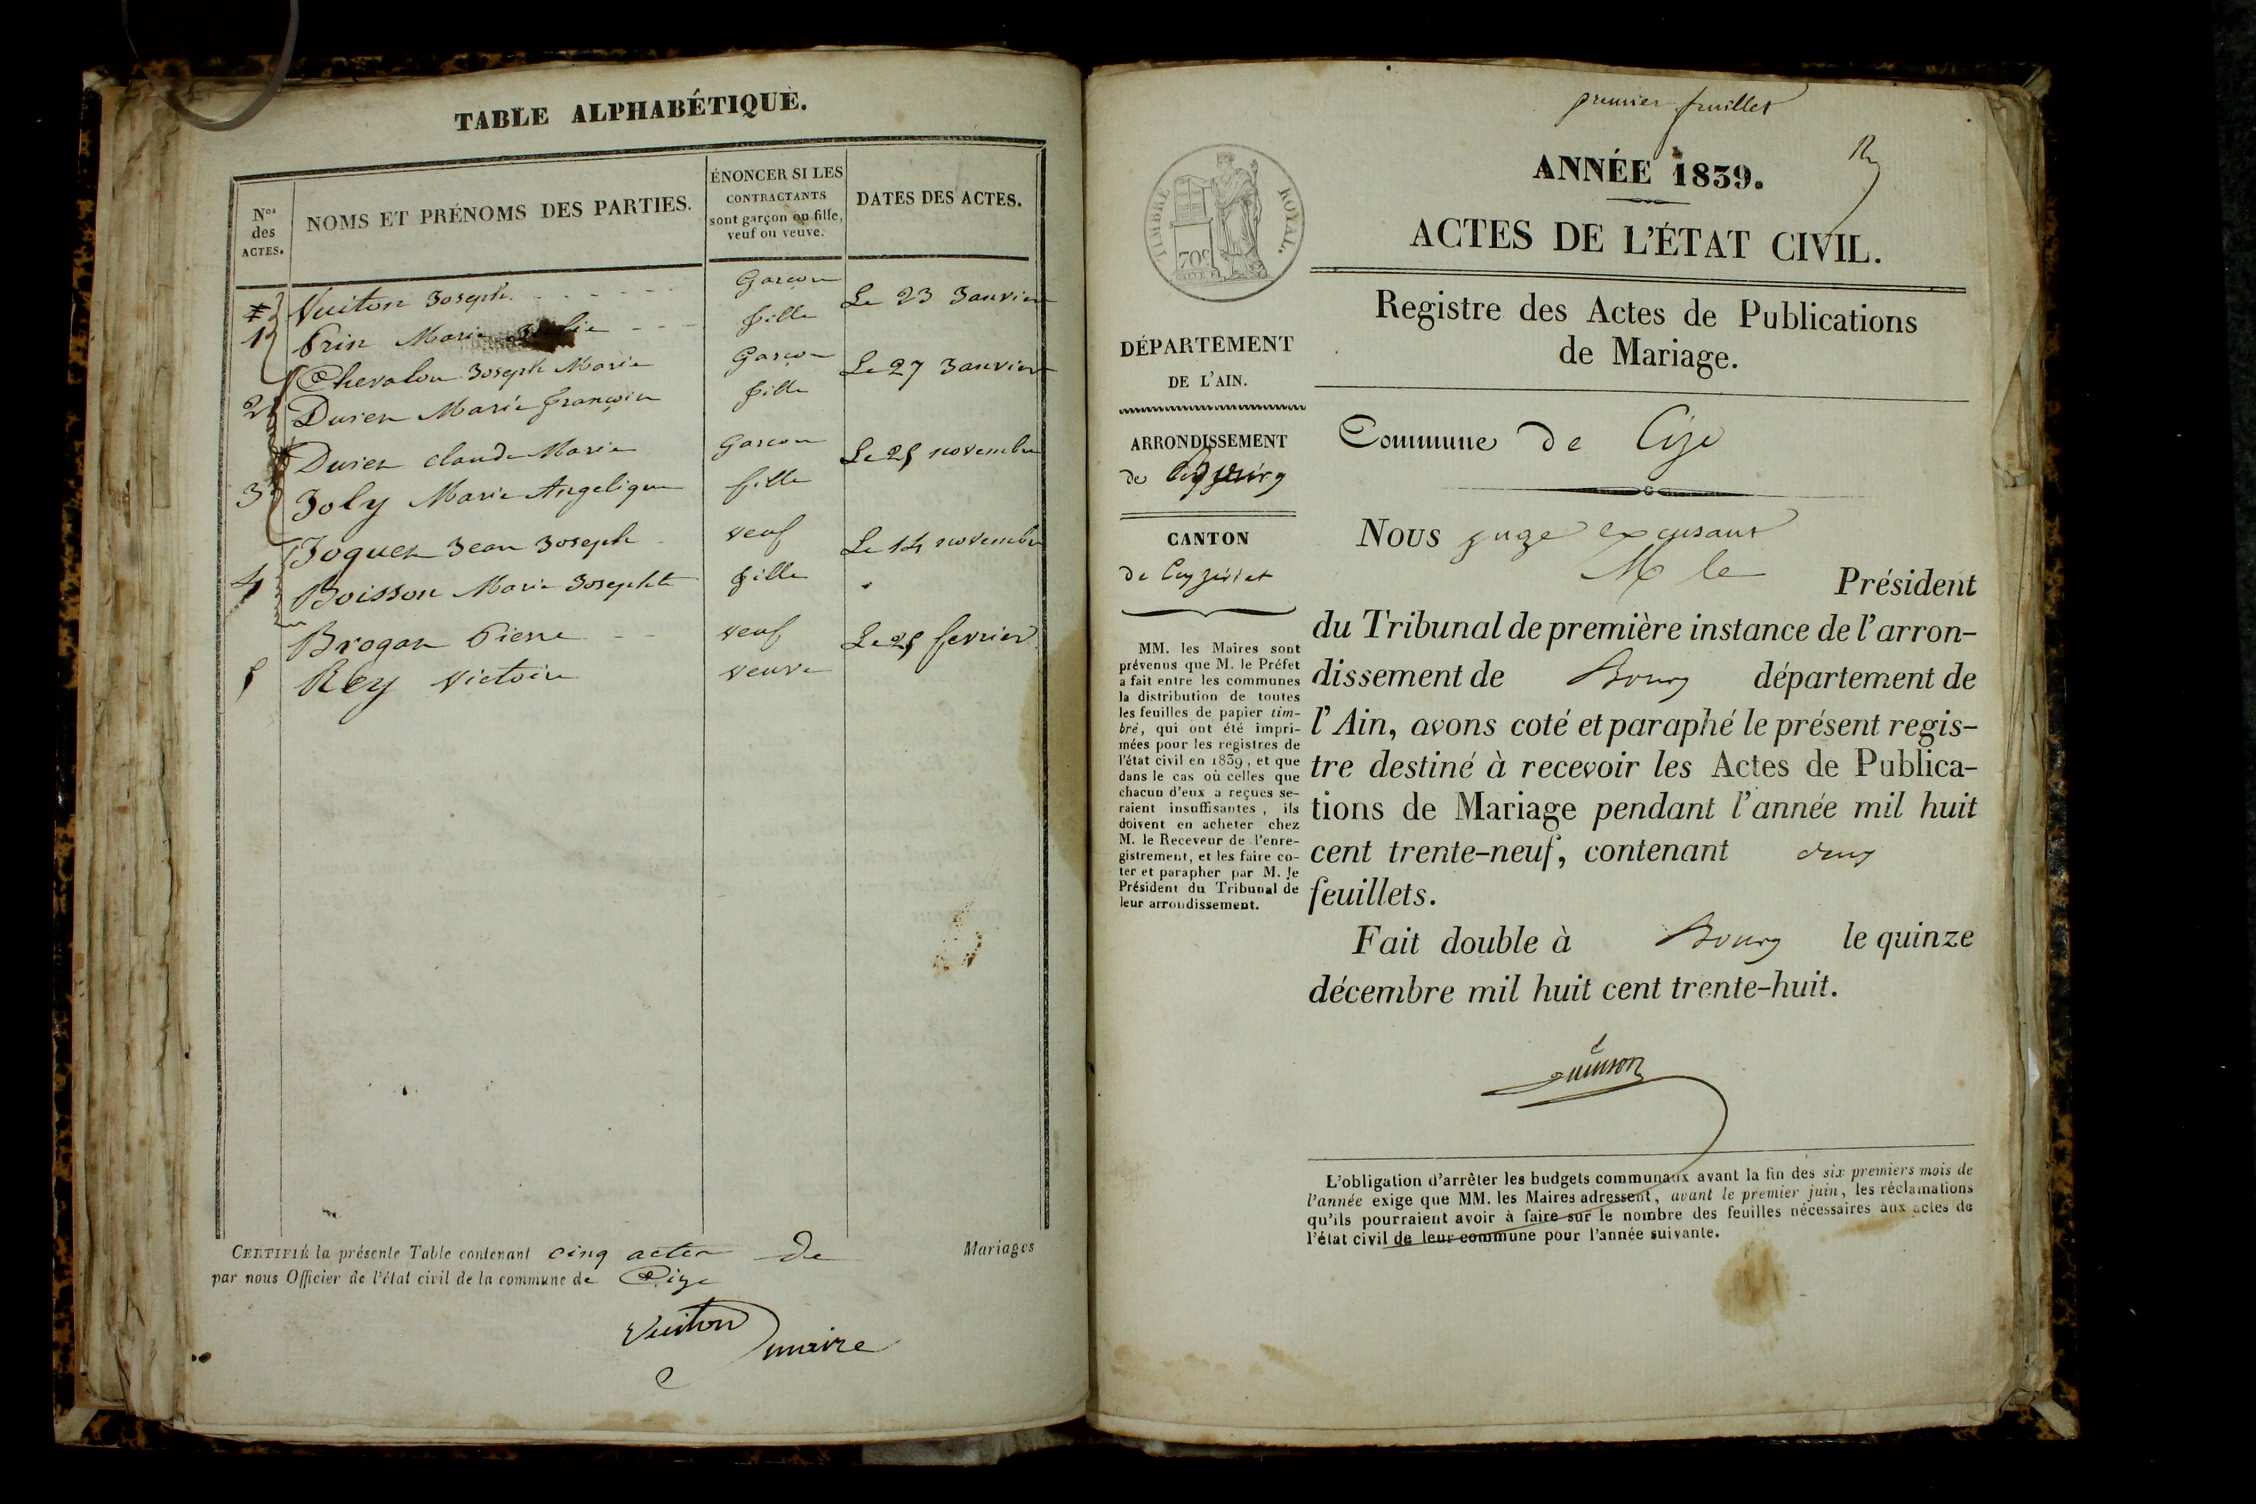 TABLE ALPHABÉTIQUE.
Nos des ACTES.
NOMS ET PRÉNOMS DES PARTIES.
ÉNONCER SI LES
CONTRACTANTS
sont garçon ou fille,
veuf ou veuve.
DATES DES ACTES.
Vuiton Joseph. Garçon Le 23 Janvier
1 Prin Marie fille
Chevalon Joseph Marie Garçon Le 27 Janvier
2 Durer Marie françoise fille
Durer claude Marie Garçon Le 25 novembre
3 Joly Marie Angelique fille
Joguer Jean Joseph veuf Le 14 novembre
4 Boisson Marie Josephte fille
Brogar Pierre veuf Le 25 fevrier
5 Rey Victoire veuve
CERTIFIÉ la présente Table contenant cinq actes de Mariages
par nous Officier de l'état civil de la commune de Cize
Vuiton
maire
premier feuillet
ANNÉE 1839.
ACTES DE L'ÉTAT CIVIL.
TIMBRE ROYAL.
70c
Registre des Actes de Publications
de Mariage.
DÉPARTEMENT
DE L'AIN.
ARRONDISSEMENT
de Bourg
CANTON
de Ceyzériat
MM. les Maires sont
prévenus que M. le Préfet
a fait entre les communes
la distribution de toutes
les feuilles de papier tim-
bré, qui ont été impri-
mées pour les registres de
l'état civil en 1839, et que
dans le cas où celles que
chacun d'eux a reçues se-
raient insuffisantes, ils
doivent en acheter chez
M. le Receveur de l'enre-
gistrement, et les faire co-
ter et parapher par M. le
Président du Tribunal de
leur arrondissement.
Commune de Cize
Nous juge excusant
M le Président
du Tribunal de première instance de l'arron-
dissement de Bourg département de
l'Ain, avons coté et paraphé le présent regis-
tre destiné à recevoir les Actes de Publica-
tions de Mariage pendant l'année mil huit
cent trente-neuf, contenant deux
feuillets.
Fait double à Bourg le quinze
décembre mil huit cent trente-huit.
L'obligation d'arrêter les budgets communaux avant la fin des six premiers mois de
l'année exige que MM. les Maires adressent, avant le premier juin, les réclamations
qu'ils pourraient avoir à faire sur le nombre des feuilles nécessaires aux actes de
l'état civil de leur commune pour l'année suivante.